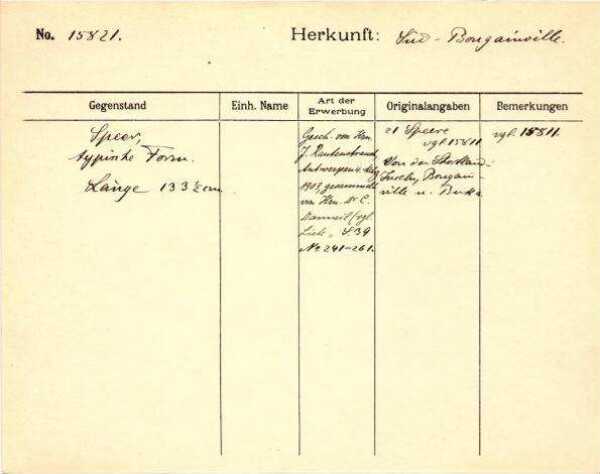 No. 15821.
Herkunft: Süd-Bougainville.
Gegenstand
Einh. Name
Art der Erwerbung
Originalangaben
Bemerkungen
Speer,
typische Form.
Länge 133½cm.
Gesch. von Hrn.
J. Rautenstrauch,
Antwerpen
1908, gesammelt
von Hrn. Dr C.
(vgl.
Liste S. 39
No 241-261.
21 Speere
vgl. 15811
Von den Shortland-
Inseln, Bougain-
ville u. Buka
vgl. 15811.